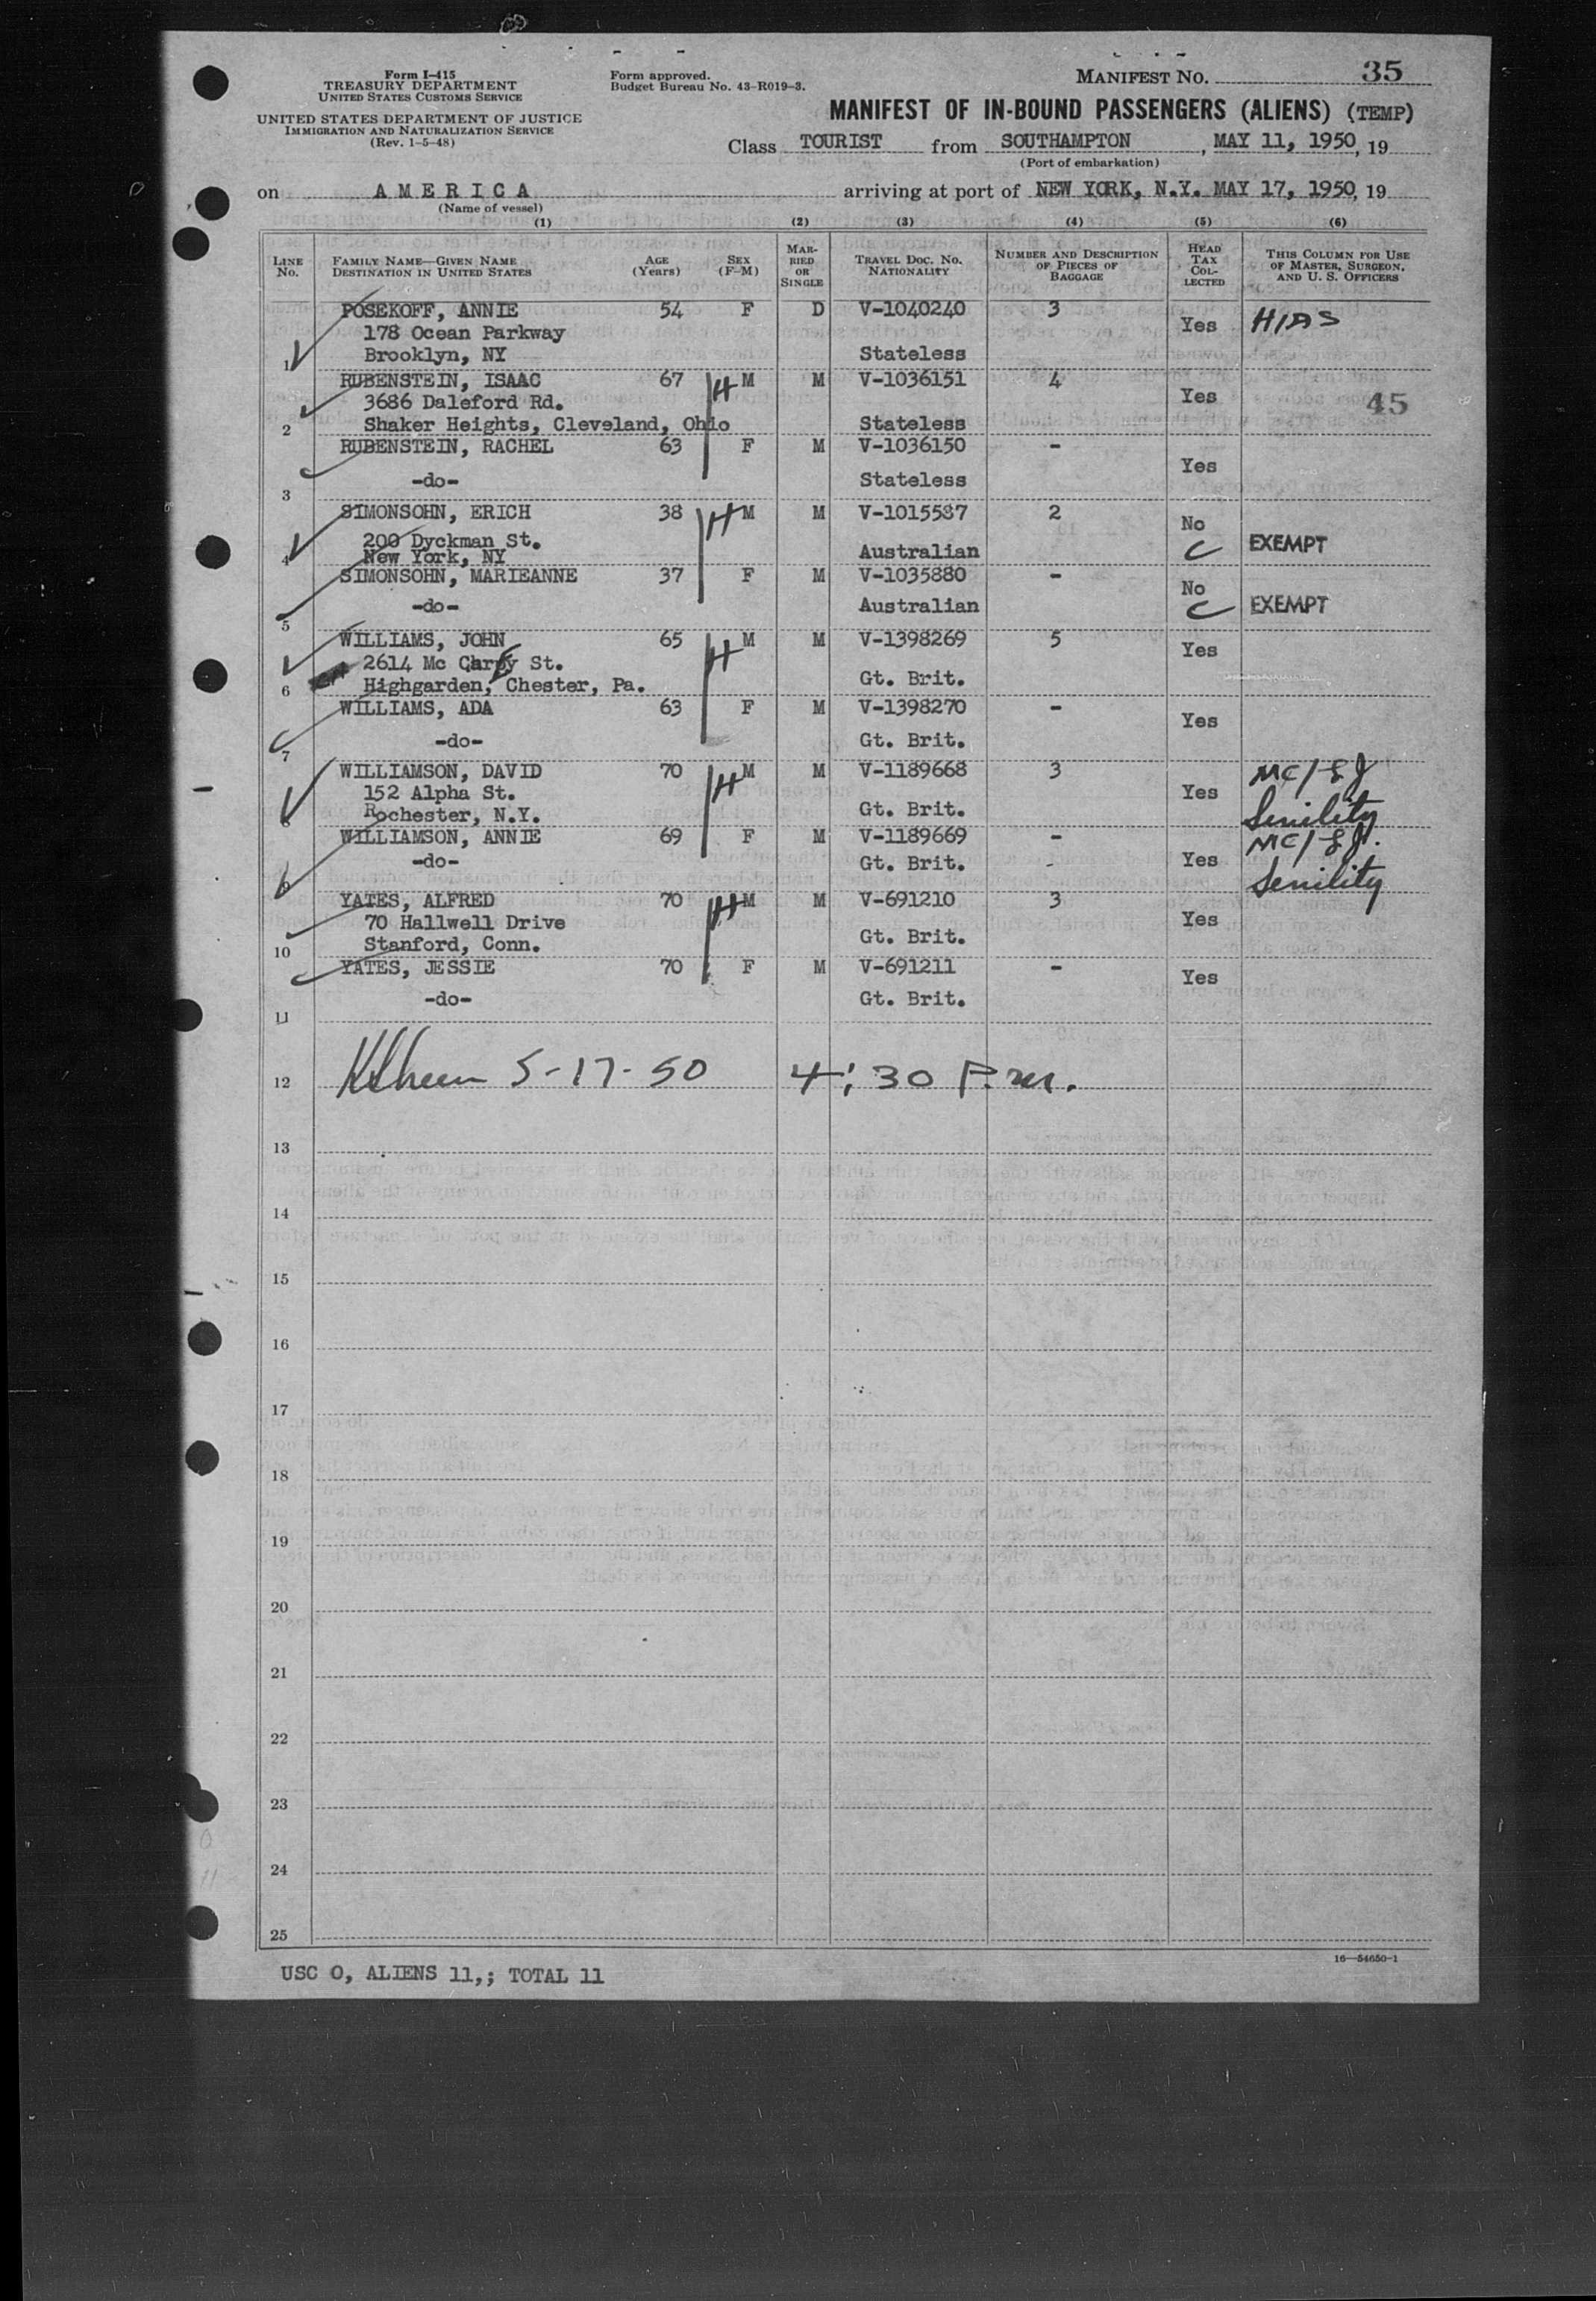 Form I-415
TREASURY DEPARTMENT
UNITED STATES CUSTOMS SERVICE
UNITED STATES DEPARTMENT OF JUSTICE
IMMIGRATION AND NATURALIZATION SERVICE
(Rev. 1-5-48)
Form approved.
Budget Bureau No. 43-R019-3.
MANIFEST NO. 35
MANIFEST OF IN-BOUND PASSENGERS (ALIENS) (TEMP)
Class TOURIST from SOUTHAMPTON, MAY 11, 1950, 19
(Port of embarkation)
on AMERICA arriving at port of NEW YORK, N.Y. MAY 17, 1950, 19
(Name of vessel)
(1) (2) (3) (4) (5) (6)
LINE NO. FAMILY NAME—GIVEN NAME DESTINATION IN UNITED STATES AGE (Years) SEX (F-M) MARRIED OR SINGLE TRAVEL DOC. NO. NATIONALITY NUMBER AND DESCRIPTION OF PIECES OF BAGGAGE HEAD TAX COLLECTED THIS COLUMN FOR USE OF MASTER, SURGEON, AND U. S. OFFICERS
POSEKOFF, ANNIE 54 F D V-1040240 3 Yes HIAS
178 Ocean Parkway
1 Brooklyn, NY Stateless
RUBENSTEIN, ISAAC 67 H M M V-1036151 4 Yes
3686 Daleford Rd. 45
2 Shaker Heights, Cleveland, Ohio Stateless
RUBENSTEIN, RACHEL 63 F M V-1036150 - Yes
3 -do- Stateless
SIMONSOHN, ERICH 38 H M M V-1015587 2 No
200 Dyckman St.
4 New York, NY Australian C EXEMPT
SIMONSOHN, MARIEANNE 37 F M V-1035880 - No
5 -do- Australian C EXEMPT
WILLIAMS, JOHN 65 H M M V-1398269 5 Yes
2614 Mc St.
6 Highgarden, Chester, Pa. Gt. Brit.
WILLIAMS, ADA 63 F M V-1398270 - Yes
7 -do- Gt. Brit.
WILLIAMSON, DAVID 70 H M M V-1189668 3 Yes
152 Alpha St.
8 Rochester, N.Y. Gt. Brit. Senility
WILLIAMSON, ANNIE 69 F M V-1189669 -
9 -do- Gt. Brit. - Yes Senility
YATES, ALFRED 70 H M M V-691210 3 Yes
70 Hallwell Drive
10 Stanford, Conn. Gt. Brit.
YATES, JESSIE 70 F M V-691211 - Yes
11 -do- Gt. Brit.
12 5-17-50 4:30 P.M.
13
14
15
16
17
18
19
20
21
22
23
24
25
16—54650-1
USC 0, ALIENS 11,; TOTAL 11